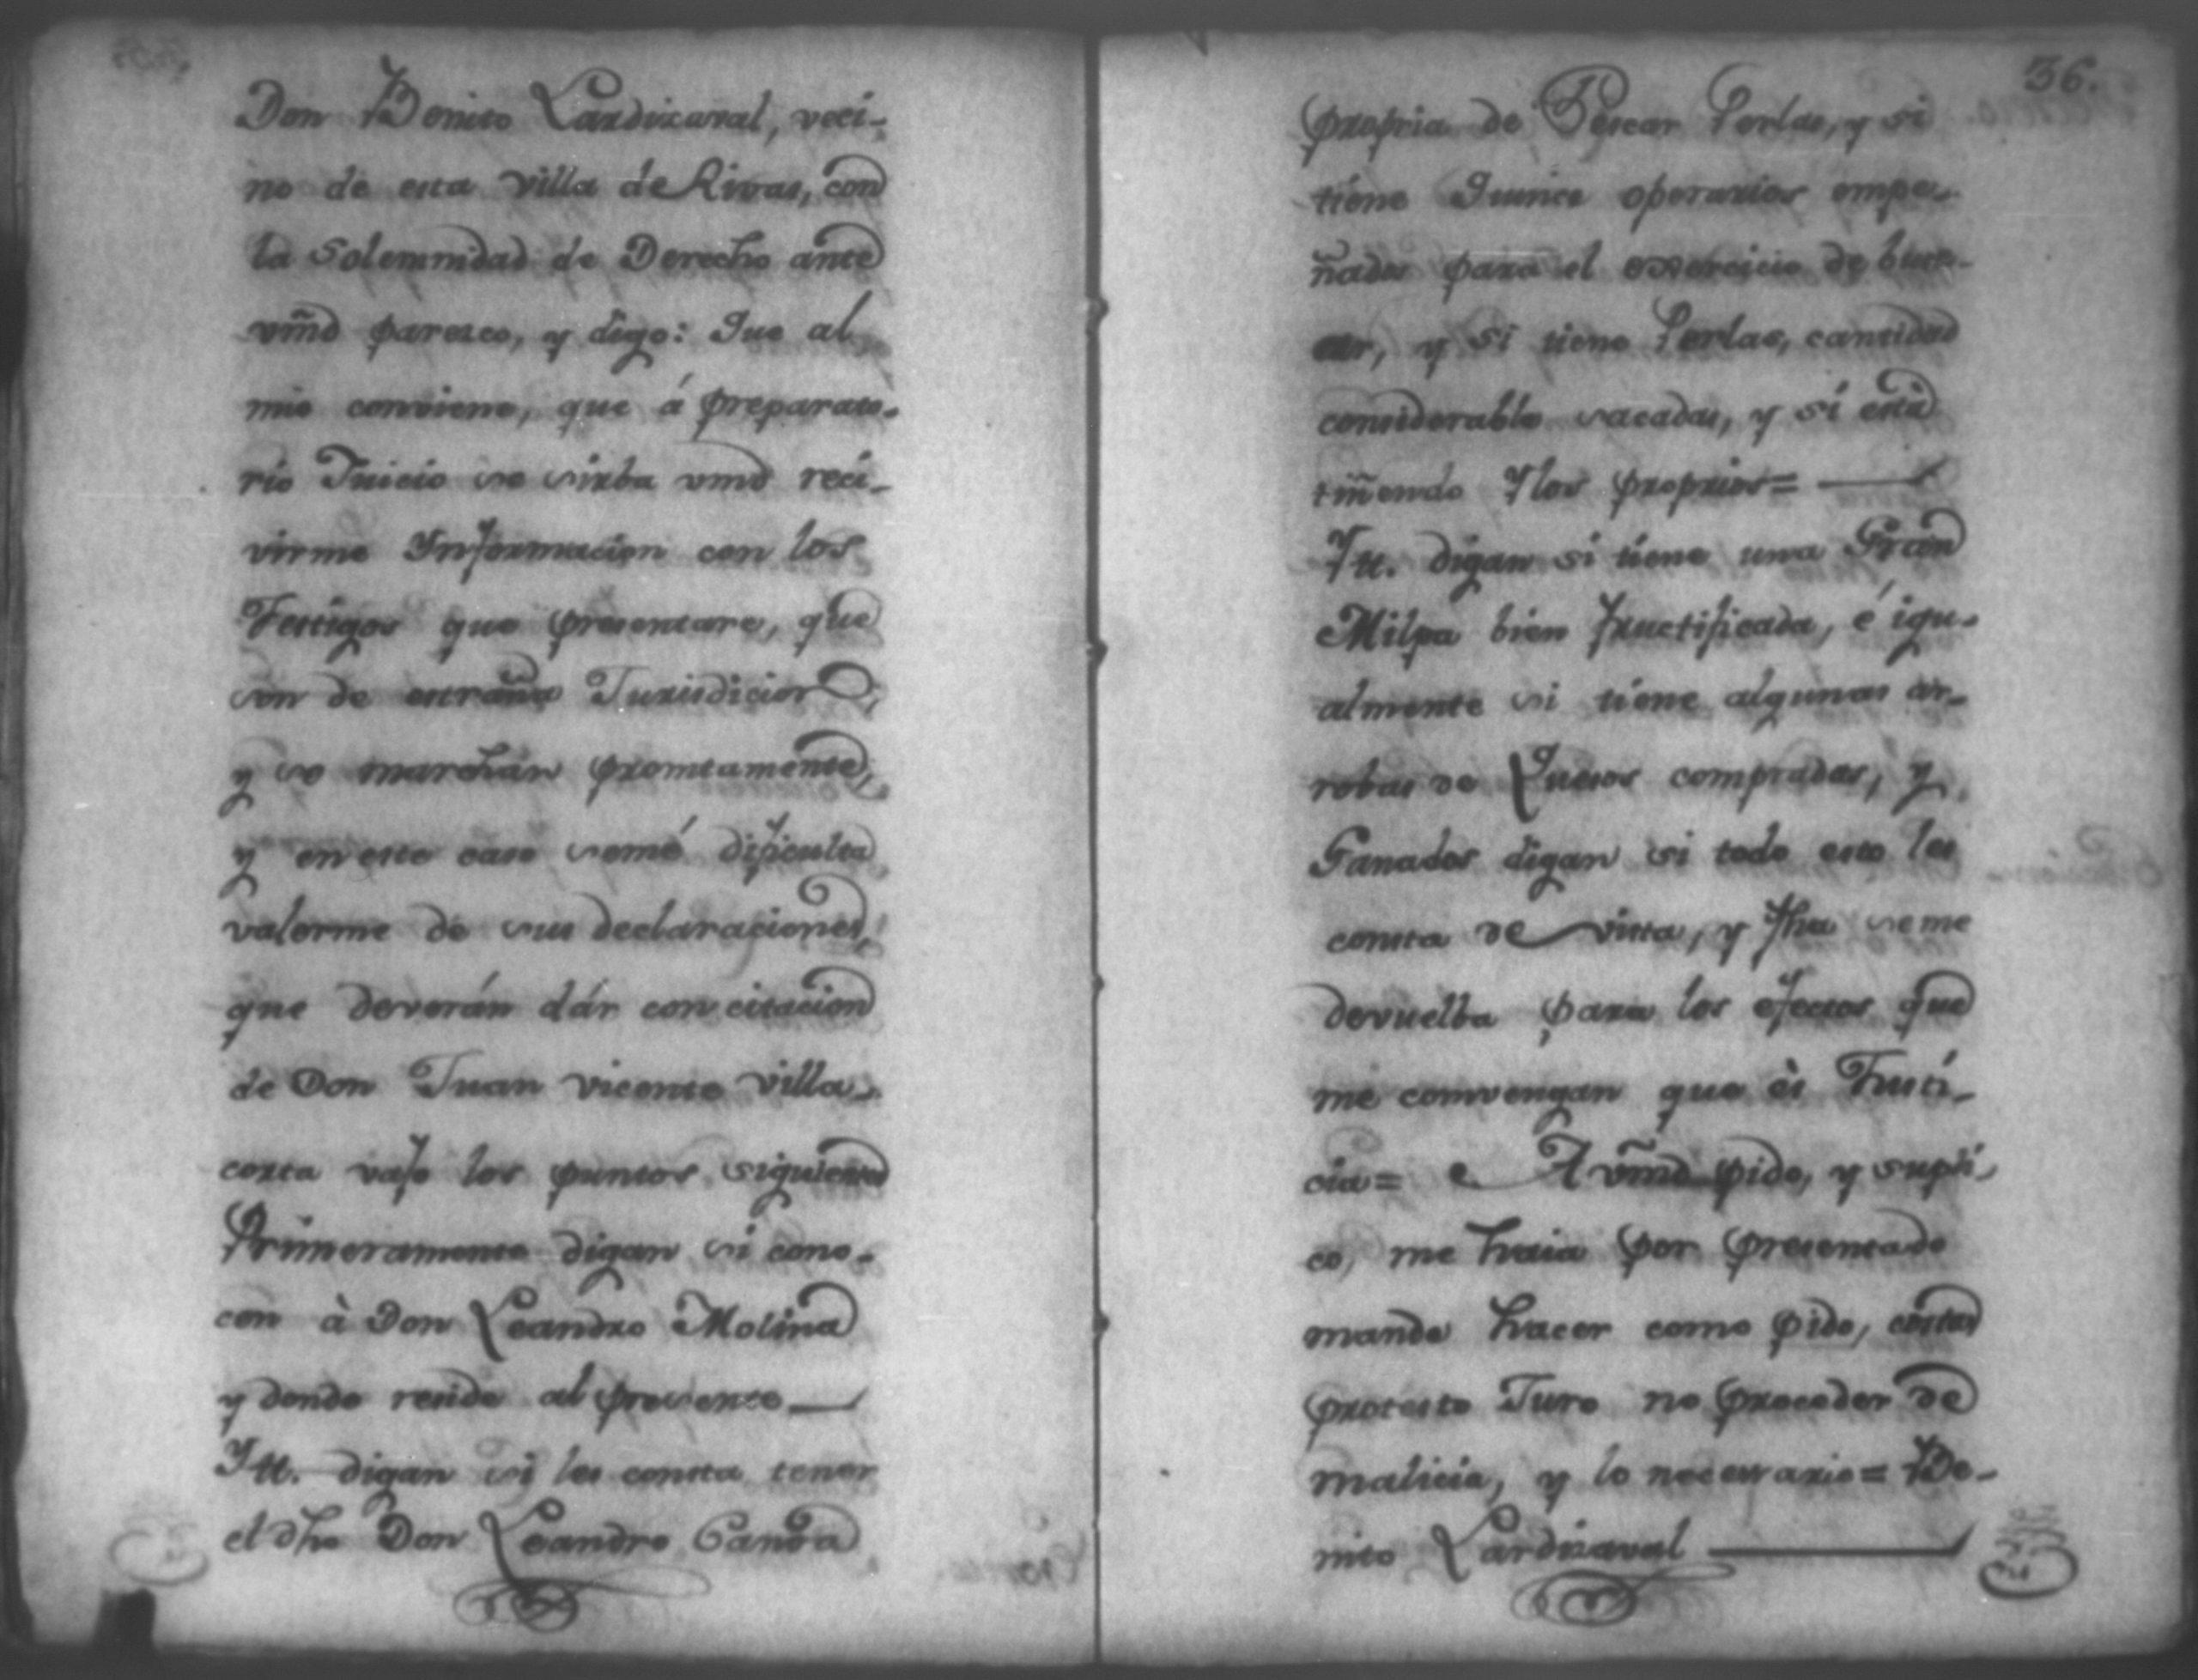 Don Benito Lardizaval, veci-
no de esta villa de Rivas, con
la Solemnidad de Derecho ante
vm̃d paresco, y digo: Que al
mio conviene, que á preparato-
rio Juicio se sirba vmd reci-
virme Informacion con los
Testigos que presentare, que
son de estraña Jurisdicion,
y se marchan promtamente,
y en este caso semé dificulta
valerme de sus declaraciones,
que deverán dár con citacion
de Don Juan Vicente Villa-
corta vajo los puntos siguientes
Primeramente digan si cono-
cen à Don Leandro Molina
y donde reside al presente
Itt. digan si les consta tener
el dho Don Leandro Canoa
36.
propria de Pescar Perlas, y si
tiene Quince operarios empe-
ñados para el exercicio de buce-
ar, y si tiene Perlas, cantidad
considerable sacadas, y si está
tiñendo Ylos proprios=
Itt. digan si tiene una Gran
Milpa bien fructificada, é igu-
almente si tiene algunas ar-
robas de Quesos compradas, y
Ganados digan si todo esto les
consta de vista, y fha se me
devuelba para los efectos que
me convengan que ès Justi-
cia= A vm̃d pido, y supli-
co, me haia por presentado
mande hacer como pido, costas
protesto Juro no proceder de
malicia, y lo necesario= Be-
nito Lardizaval